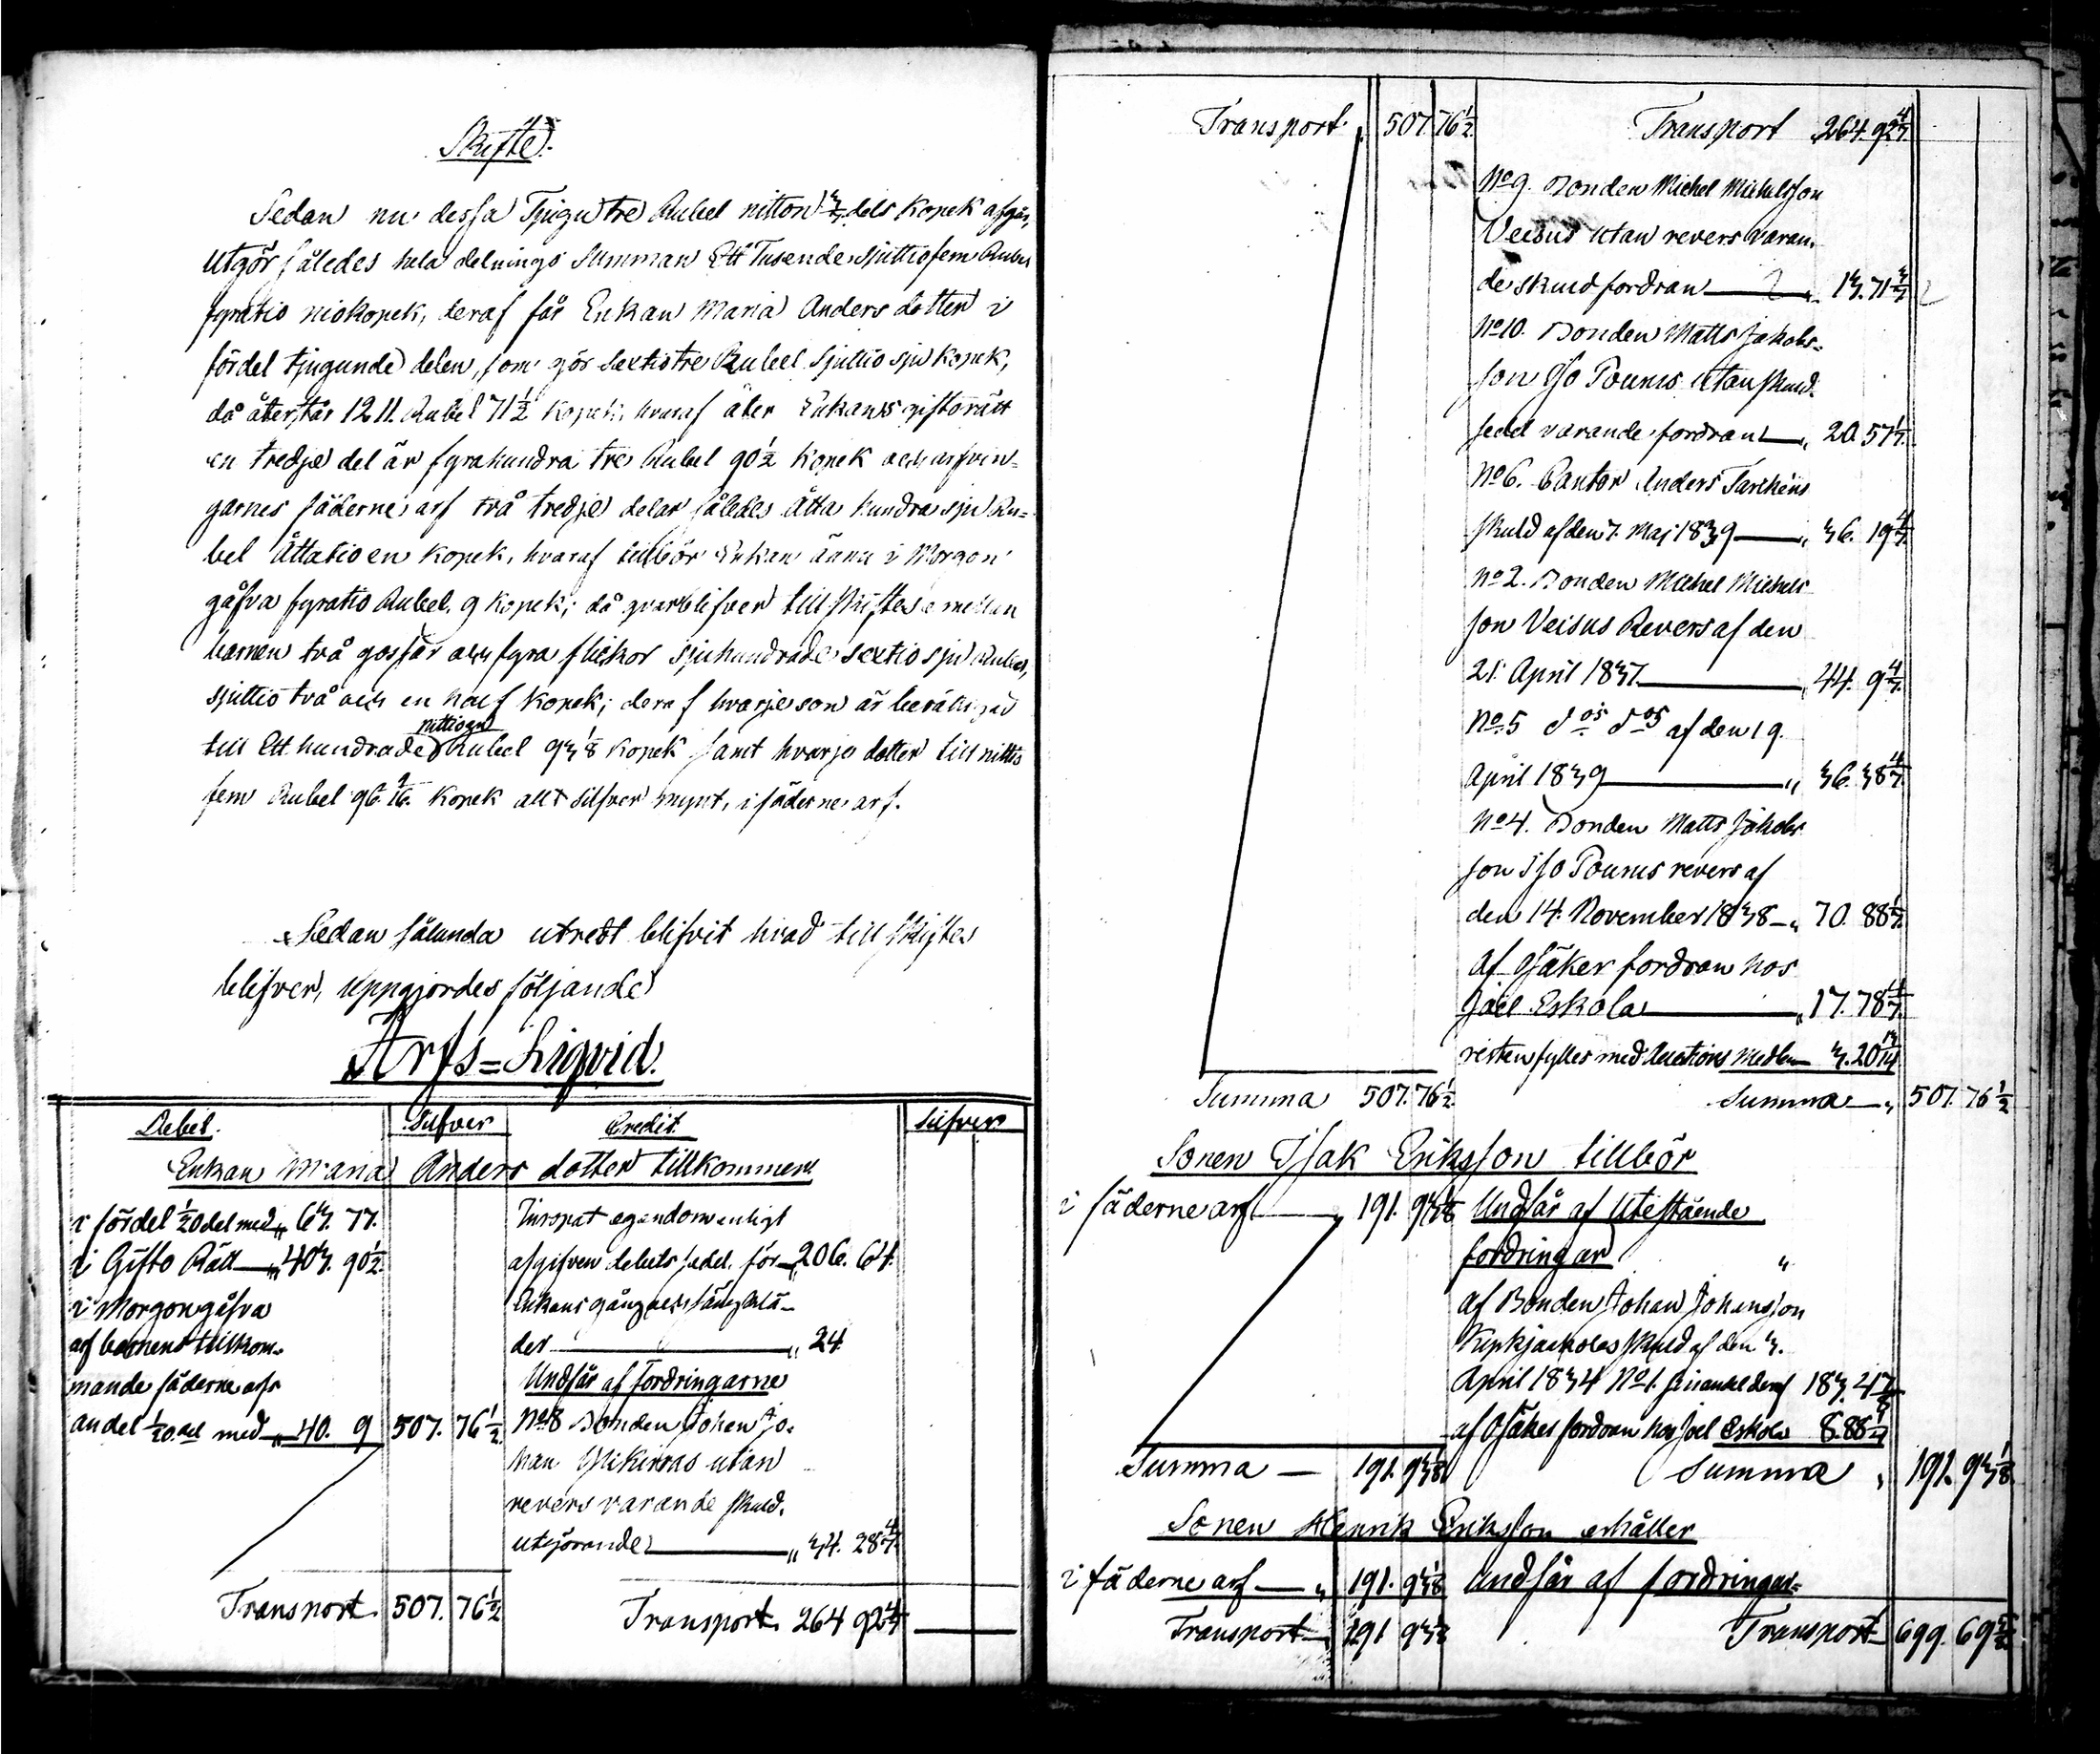 Skifte.
Sedan nu dessa Tjugu tre Rubel nitton 3/7 dels Kopek afgår,
utgör således hela delnings Summan Ett Tusende sjuttiofem Rubel
fyratio nio kopek, deraf får Enkan Maria Anders dotter i
fördel tjugunde delen, som gör Sextiotre Rubel sjuttio sju kopek,
då återstår 1211. Rubel 71 1/2 Kopek, hvaraf åter Enkans giftorätt
en tredje del är fyrahundra tre Rubel 90 1/2 Kopek och arfvin=
garnes fäderne arf två tredje delar således Åtta hundra sju Ru=
bel Åttatio en kopek, hvaraf tillhör Enkan ännu i Morgon
gåfva fyratio Rubel 9 kopek; då qvarblifver till skiftes emellan
barnen två gossar och fyra flickor sjuhundrade sextio sju Rubel,
sjuttio två och en half kopek; deraf hvarje son är berättigad
till Ett hundrade nittiogn Rubel 93 1/8 kopek samt hvarje dotter till nittio
fem Rubel 96 9/16 Kopek allt silfver mynt, i fäderne arf.
Sedan sålunda utredt blifvit hvad till skiftes
blifver, uppgjordes följande
Arfs=Liqvid.
Debet. Silfver Credit Silfver
Enkan Maria Anders dotter tillkommer
i fördel 1/20 del med „ 63. 77.
i Gifto Rätt — „ 403. 90 1/2
i Morgongåfva
af barnens tillkom-
mande fäderne arfs
andel 1/20 del med „ 40. 9 507. 76 1/2
Transport 507. 76 1/2
egendom enligt
afgifven debets sedel för — 206. 64.
Enkans gång och sängklä-
der — „ 24
Undfår af fordringarne
No 8 Bonden Johan Jo-
han utan
revers varande skuld.
utgörande — „ 34. 28 4/7
Transport. 264 92 4/7
Transport. 507. 76 1/2 Transport 264. 92 4/7
No 9. Bonden Michel Michelsson
Veisus utan revers varan-
de skuld fordran — „ 13. 71 3/7
No 10. Bonden Matts Jakobs=
son Iso Pounus utan skuld.
sedel varande fordran — „ 20. 57 1/7
No 6. Cantor Anders
skuld af den 7. Maj 1839 — „ 36. 19 4/7
No 2. Bonden Michel Michels
son Veisus Revers af den
21. April 1837 — „ 44. 9 4/7
No 5 d:o d:o af den 19.
April 1839 — „ 36. 38 4/7
No 4. Bonden Matts Jakobs
son Iso Pounus revers af
den 14. November 1838 — „ 70. 88 1/7
af osäker fordran hos
Joel Eskola — „ 17. 78 4/7
resten fylles med Auctions Medlen 3. 20 13/14
Summa 507. 76 1/2 Summa — „ 507. 76 1/2
Sonen Isak Eriksson tillhör
i fäderne arf — „ 191. 93 1/8 Undfår af Utestående
fordringar „
af Bonden Johan Johansson
skuld af den 3.
April 1834 No 1. deraf 183. 4 7/8
af osäker fordran hos Joel Eskola 8. 88 1/4
Summa — 191. 93 1/8 Summa „ 191. 93 1/8
Sonen Henrik Eriksson erhåller
i fäderne arf — „ 191. 93 1/8 Undfår af fordringar=
Transport — 191 93 1/8 Transport — 699. 69 5/8